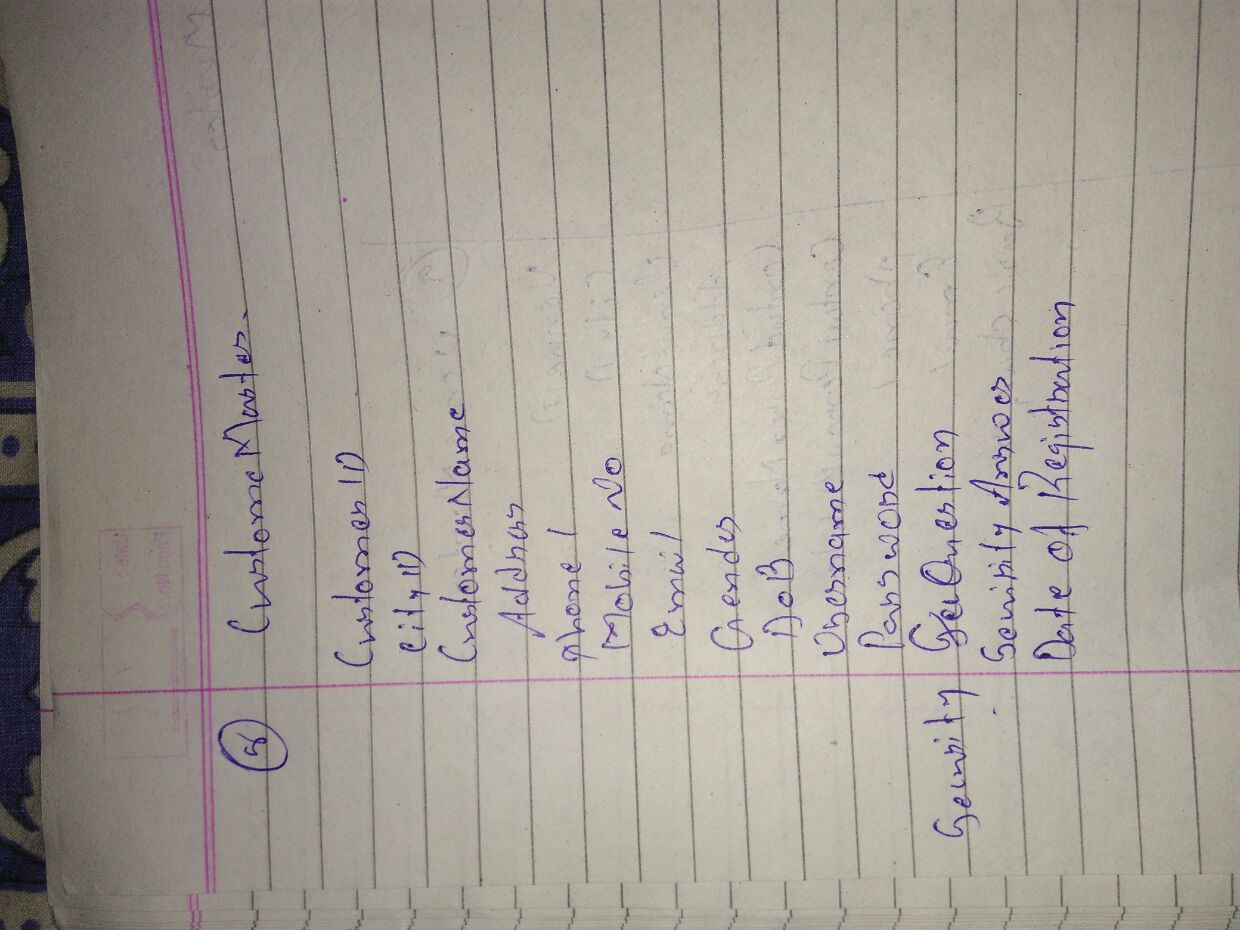 8 CustomeMaster.
Customer ID
City ID
CustomerName
Address
Phone 1
Mobile No
Email
Gender
DoB
Username
Password
Security SeQuestion
Security Answer
Date of Registration